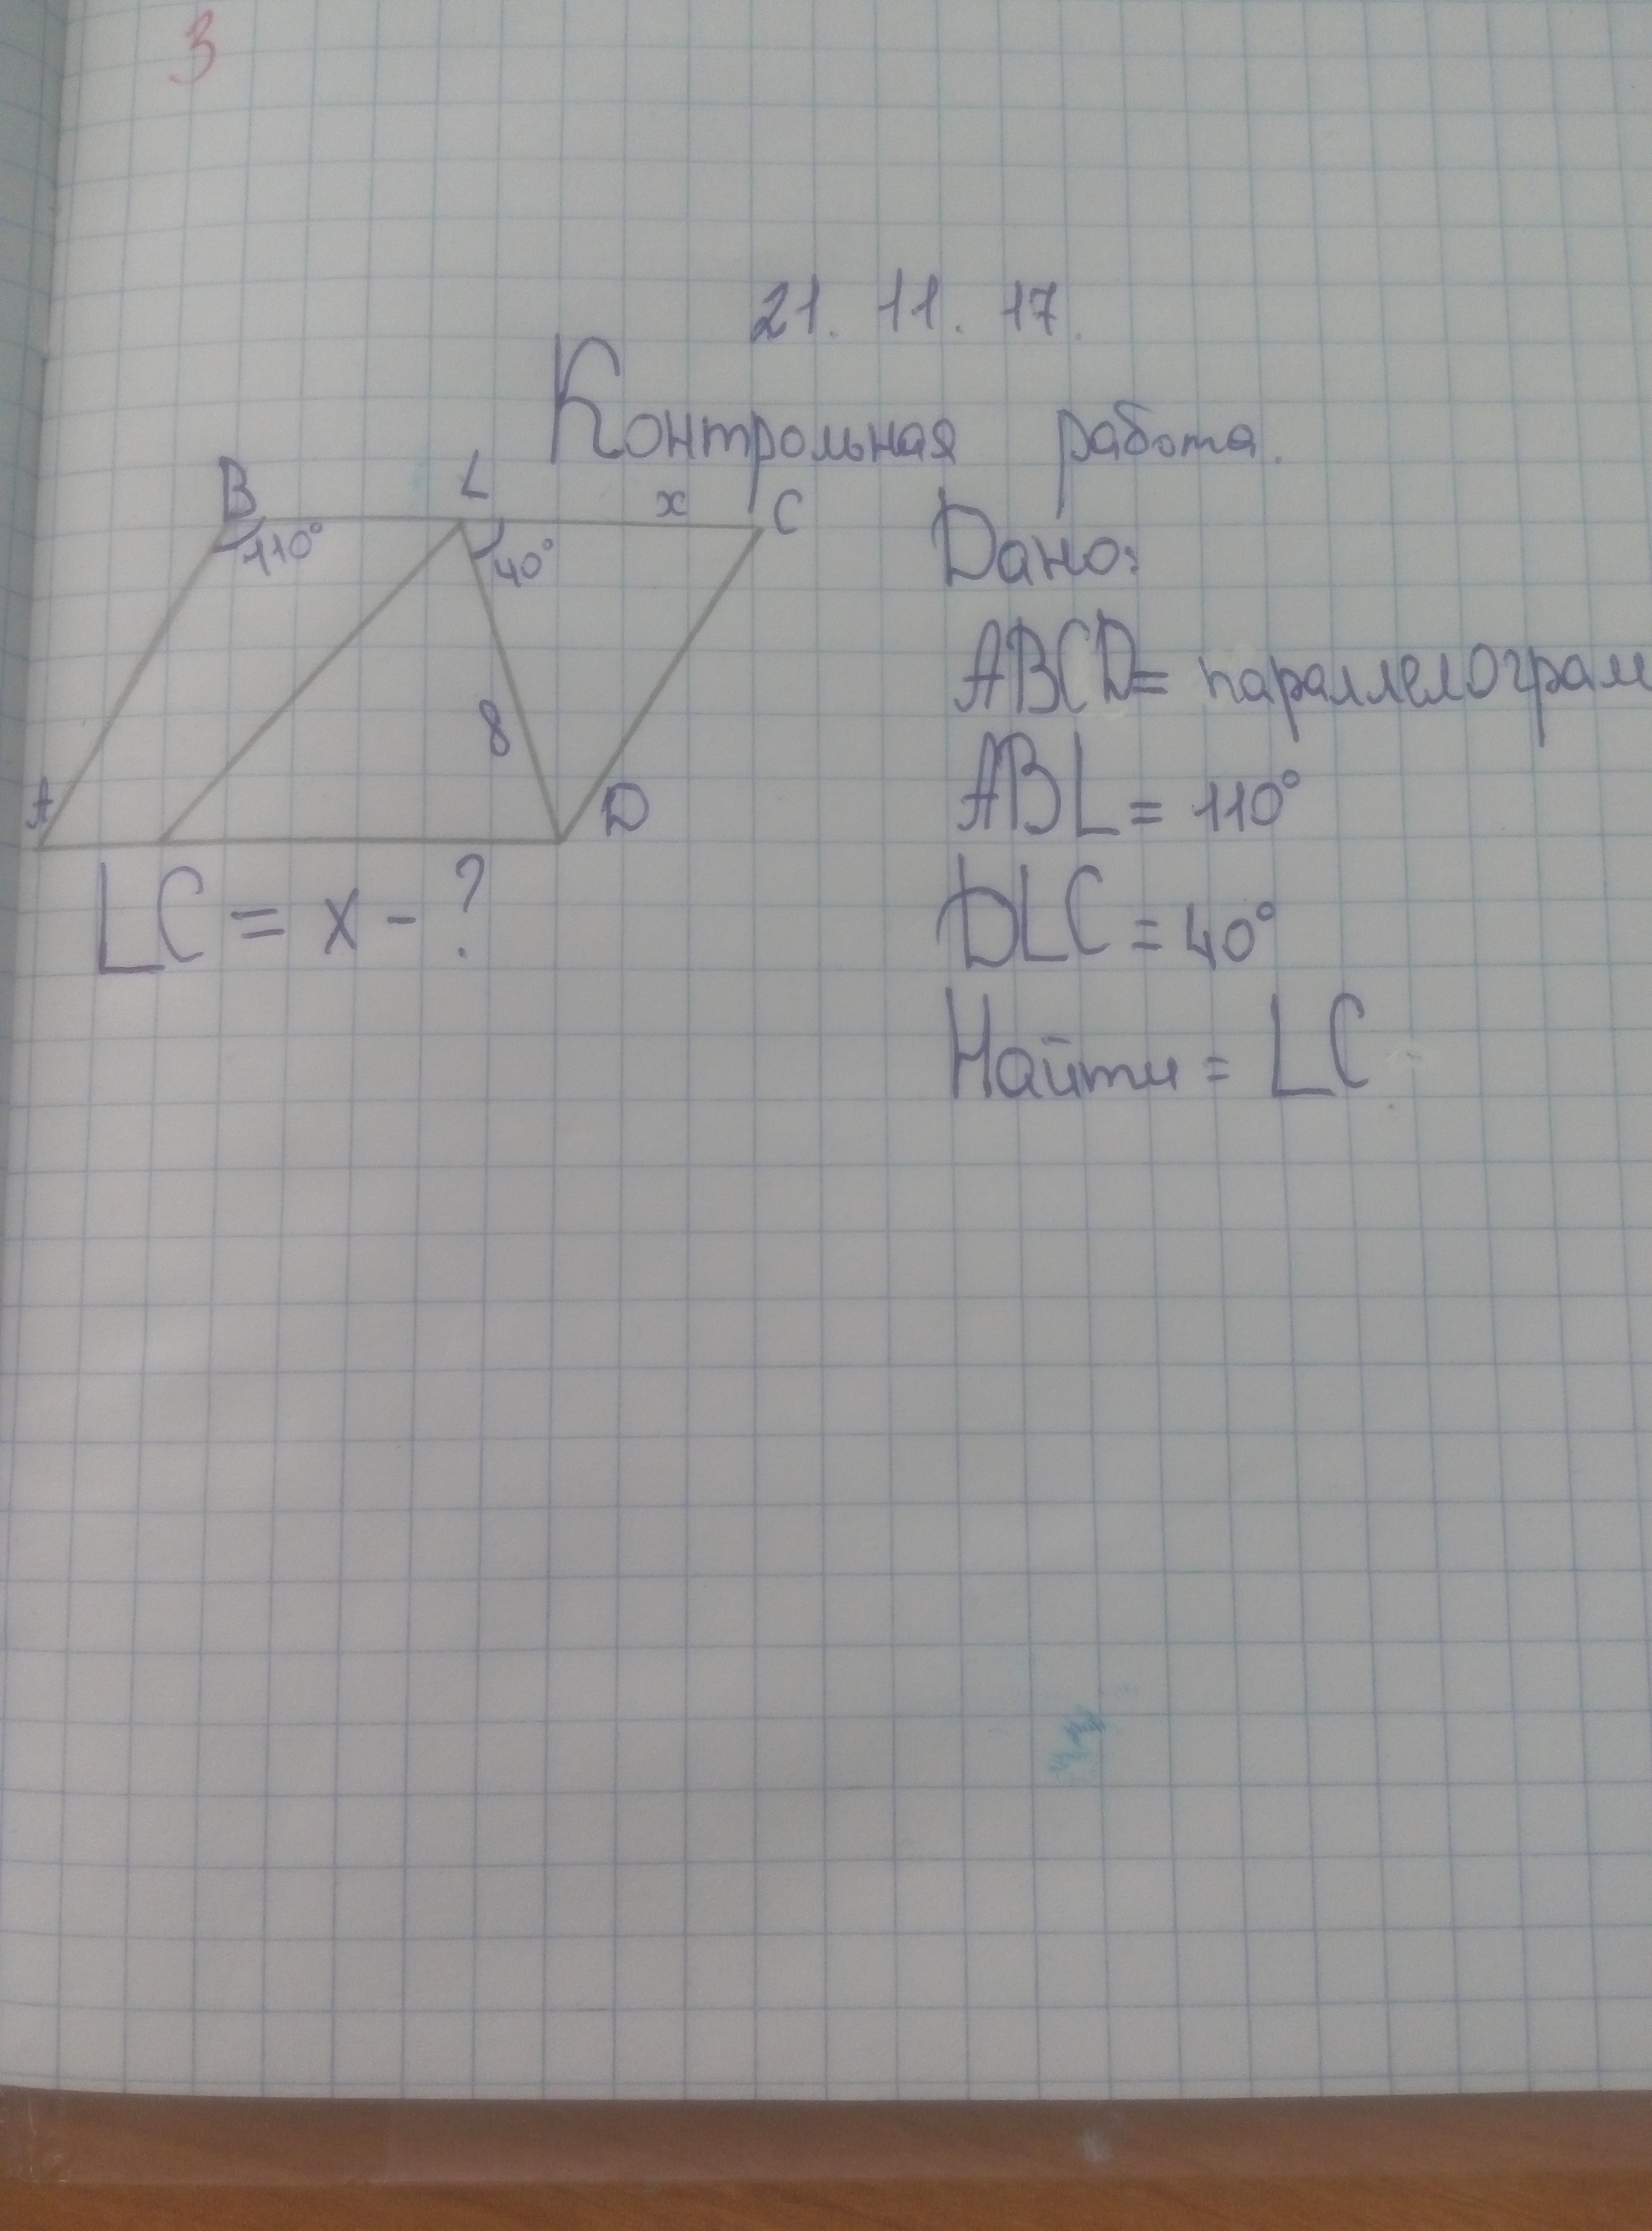 3
21. 11. 17.
Контрольная работа.
B L x C
110° 40°
8
A D
LC = x - ?
Дано:
ABCD= параллелограм
ABL = 110°
DLC = 40°
Найти = LC